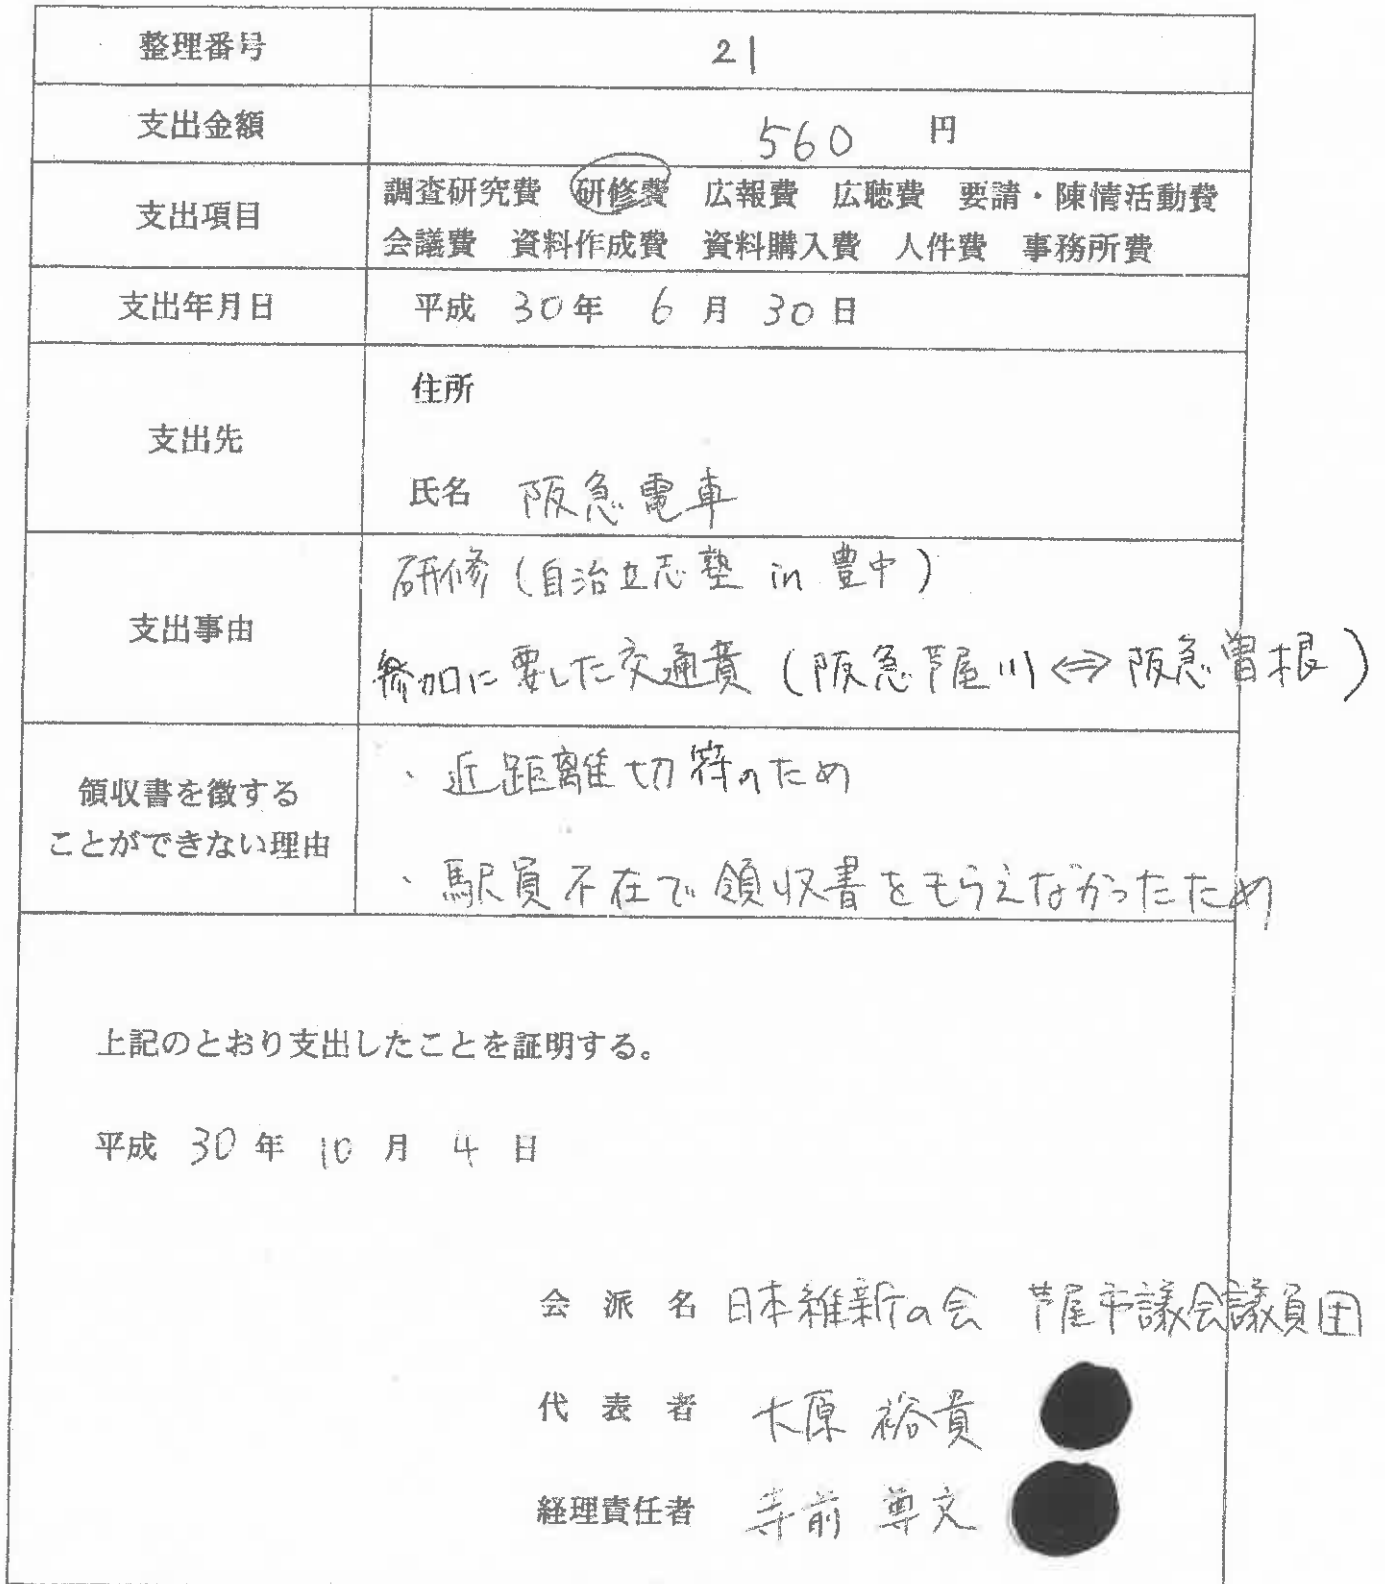 整理番号 21
支出金額 560 円
支出項目 調査研究費 研修費 広報費 広聴費 要請・陳情活動費
会議費 資料作成費 資料購入費 人件費 事務所費
支出年月日 平成 30年 6月 30日
支出先 住所
氏名 阪急電車
支出事由 研修(自治立志塾 in 豊中)
参加に要した交通費(阪急芦屋川⇔阪急曽根)
領収書を徴する
ことができない理由
・近距離切符のため
・駅員不在で領収書をもらえなかったため
上記のとおり支出したことを証明する。
平成 30年 10月 4日
会派名 日本維新の会 芦屋市議会議員団
代表者 大原 裕貴
経理責任者 寺前 尊文